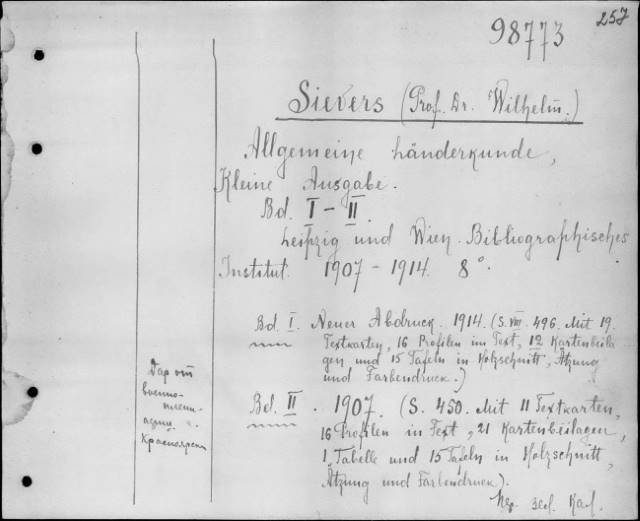 257
98773
Sievers (Prof. Dr. Wilhelm.)
Allgemeine Länderkunde,
Kleine Ausgabe.
Bd. I – II
Leipzig und Wien. Bibliographisches
Institut. 1907 – 1914. 8°.
Bd. I. Neuer Abdruck. 1914. (S. VIII. 496. Mit 19.
Textkarten, 16 Profilen im Text, 12 Kartenbeila
gen und 15 Tafeln in Holzschnitt, Ätzung
und Farbendruck.)
Bd. II. 1907. (S. 450. Mit 11 Textkarten,
16 Profilen in Text, 21 Kartenbeilagen,
1 Tabelle und 15 Tafeln in Holzschnitt,
Ätzung und Farbendruck).
Дар от
военно-
плен-
лагеря
Красноярск